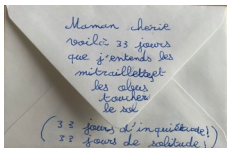 Maman cherie
voilà 33 jours
que j'entends les
mitraillettes et
les obus
toucher
le sol
(33 jours d'inquiétude!)
33 jours de solitude!)